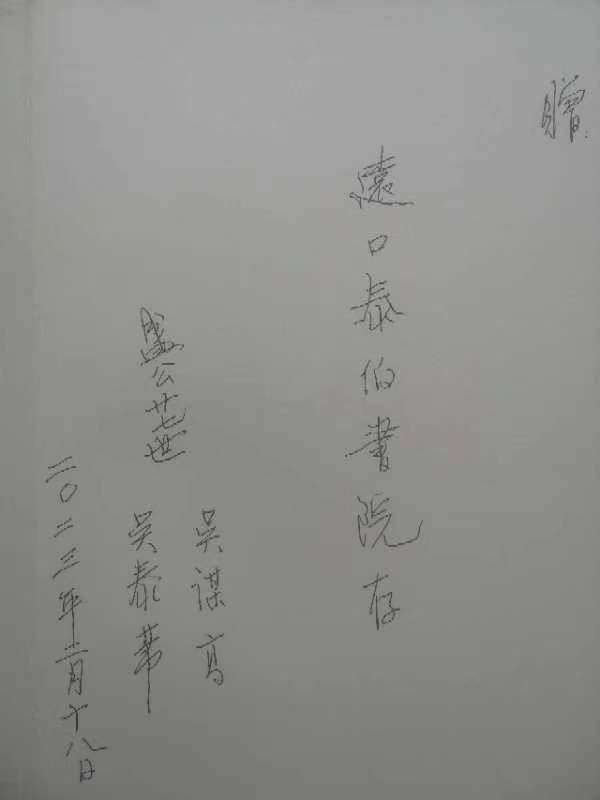 贈
遠口泰伯書院存
吳謀高
盛公廿七世
吳泰華
二〇二三年二月十八日